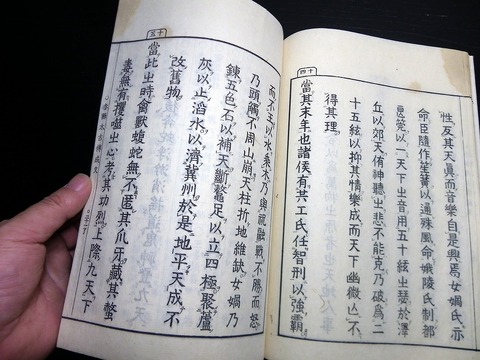 十四
性及其天眞而音樂自是興焉女媧氏示
命臣隨作笙簧以通殊風命娥陵氏制都
良筦以一天下㞢音用五十絃㞢瑟於澤
丘以郊天侑神聽㞢悲不能克乃破為二
十五絃以抑其情樂成而天下幽微亾不
得其理
當其末年也諸侯有共工氏任智刑以強霸
十五
而不王以水乘木乃與祝融戰不勝而怒
乃頭觸不周山崩天柱折地維缺女媧乃
鍊五色石以補天斷鼇足以立四極聚蘆
灰以止滔水以濟冀州於是地平天成不
改舊物
當此㞢時禽獸蝮蛇無不匿其爪牙藏其螫
毒無有攫噬㞢心考其功烈上際九天下